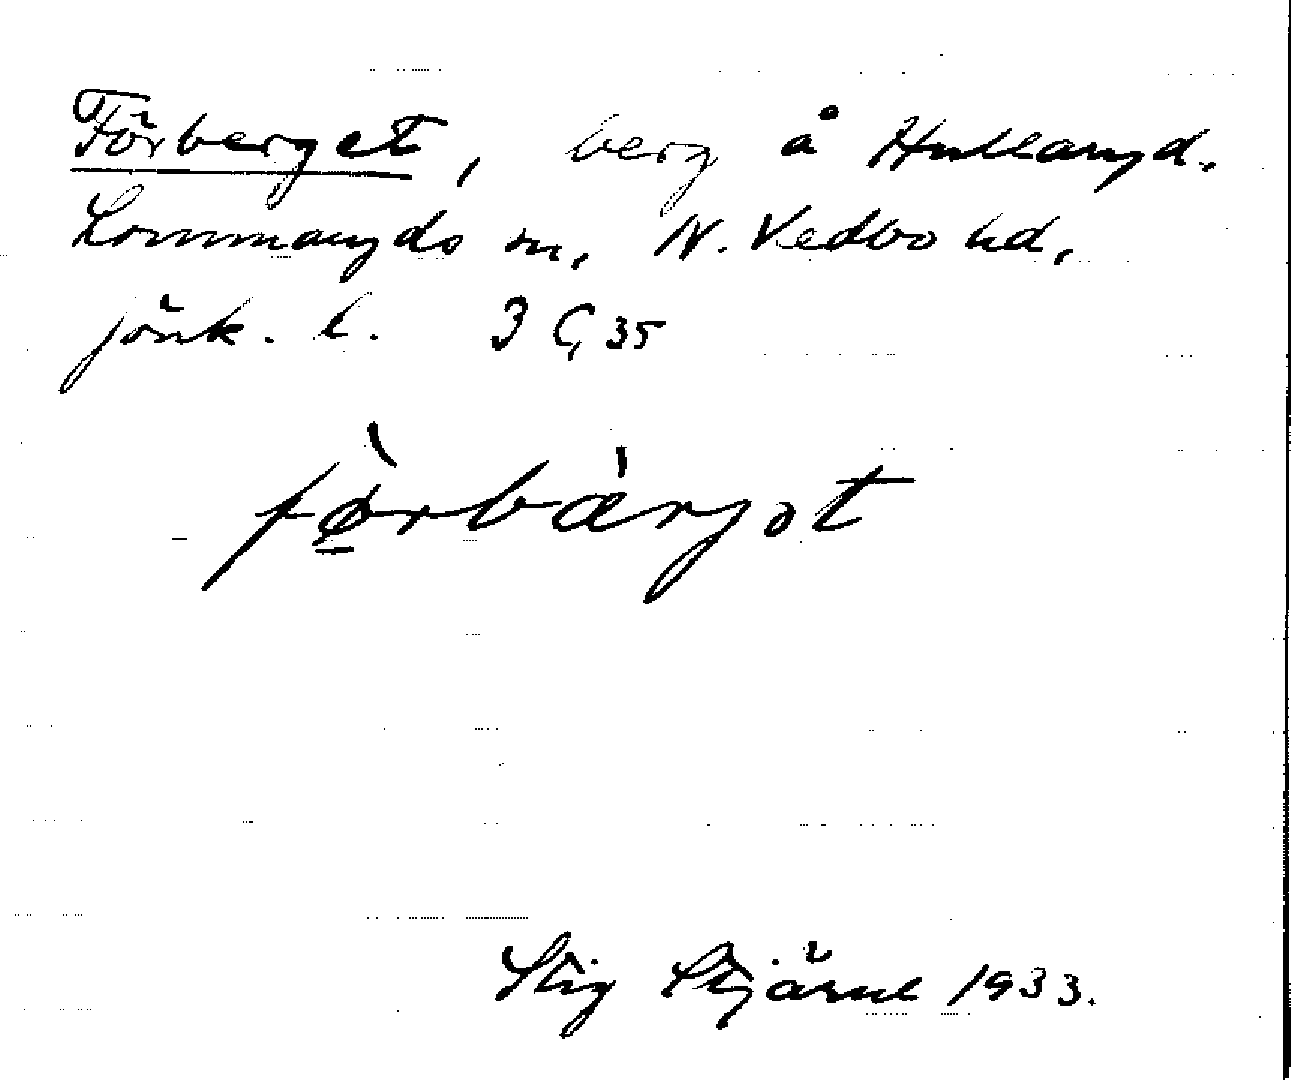 Förberget, berg å Hullaryd.
Lommaryds sn, N. Vedbo hd,
Jönk. l. 3 G, 35
fø̀rbàrjət
Stig Stjärne 1933.